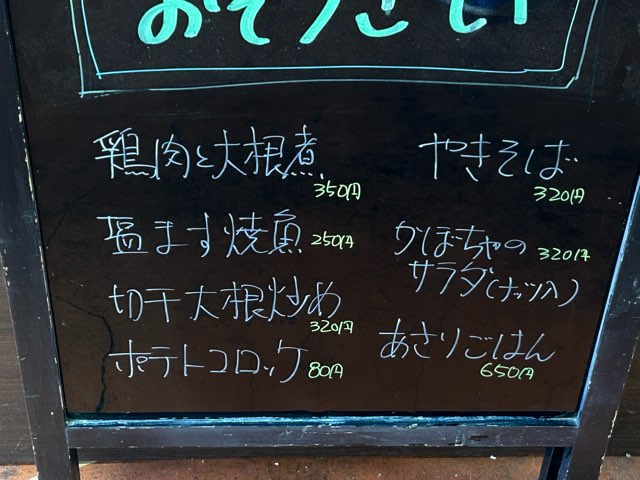 おそうざい
鶏肉と大根煮
350円
塩ます焼魚 250円
切干大根炒め
320円
ポテトコロッケ 80円
やきそば
320円
かぼちゃの 320円
サラダ(ナッツ入)
あさりごはん
650円